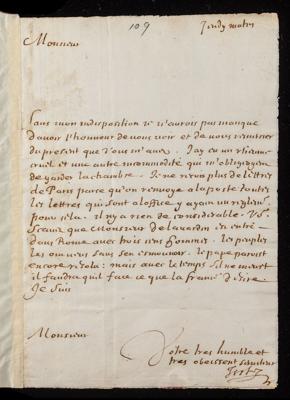 109
Jeudy matin
Monsieur
Sans mon indisposition je n'aurois pas manqué
d'avoir l'honneur de vous voir et de vous remercier
du present que vous m'avez. J'ay eu un
cruel et une autre incommodité qui m'obligoient
de garder la chambre. Je ne reçus plus de lettres
de Paris parce qu'on renvoye a la poste toutes
les lettres qui sont a l'office y ayant un
pour cela. il n'y a rien de considerable. V. S.
Sçaura que Monsieur de Lavardin est entré
dans Rome avec trois cens hommes. les peuples
les ont veus sans s'en esmouvoir. le pape paroist
encore : mais avec le temps s'il ne meurt
il faudra qu'il face ce que la France desire
Je suis
Monsieur
Vostre tres humble et
tres obeissent serviteur